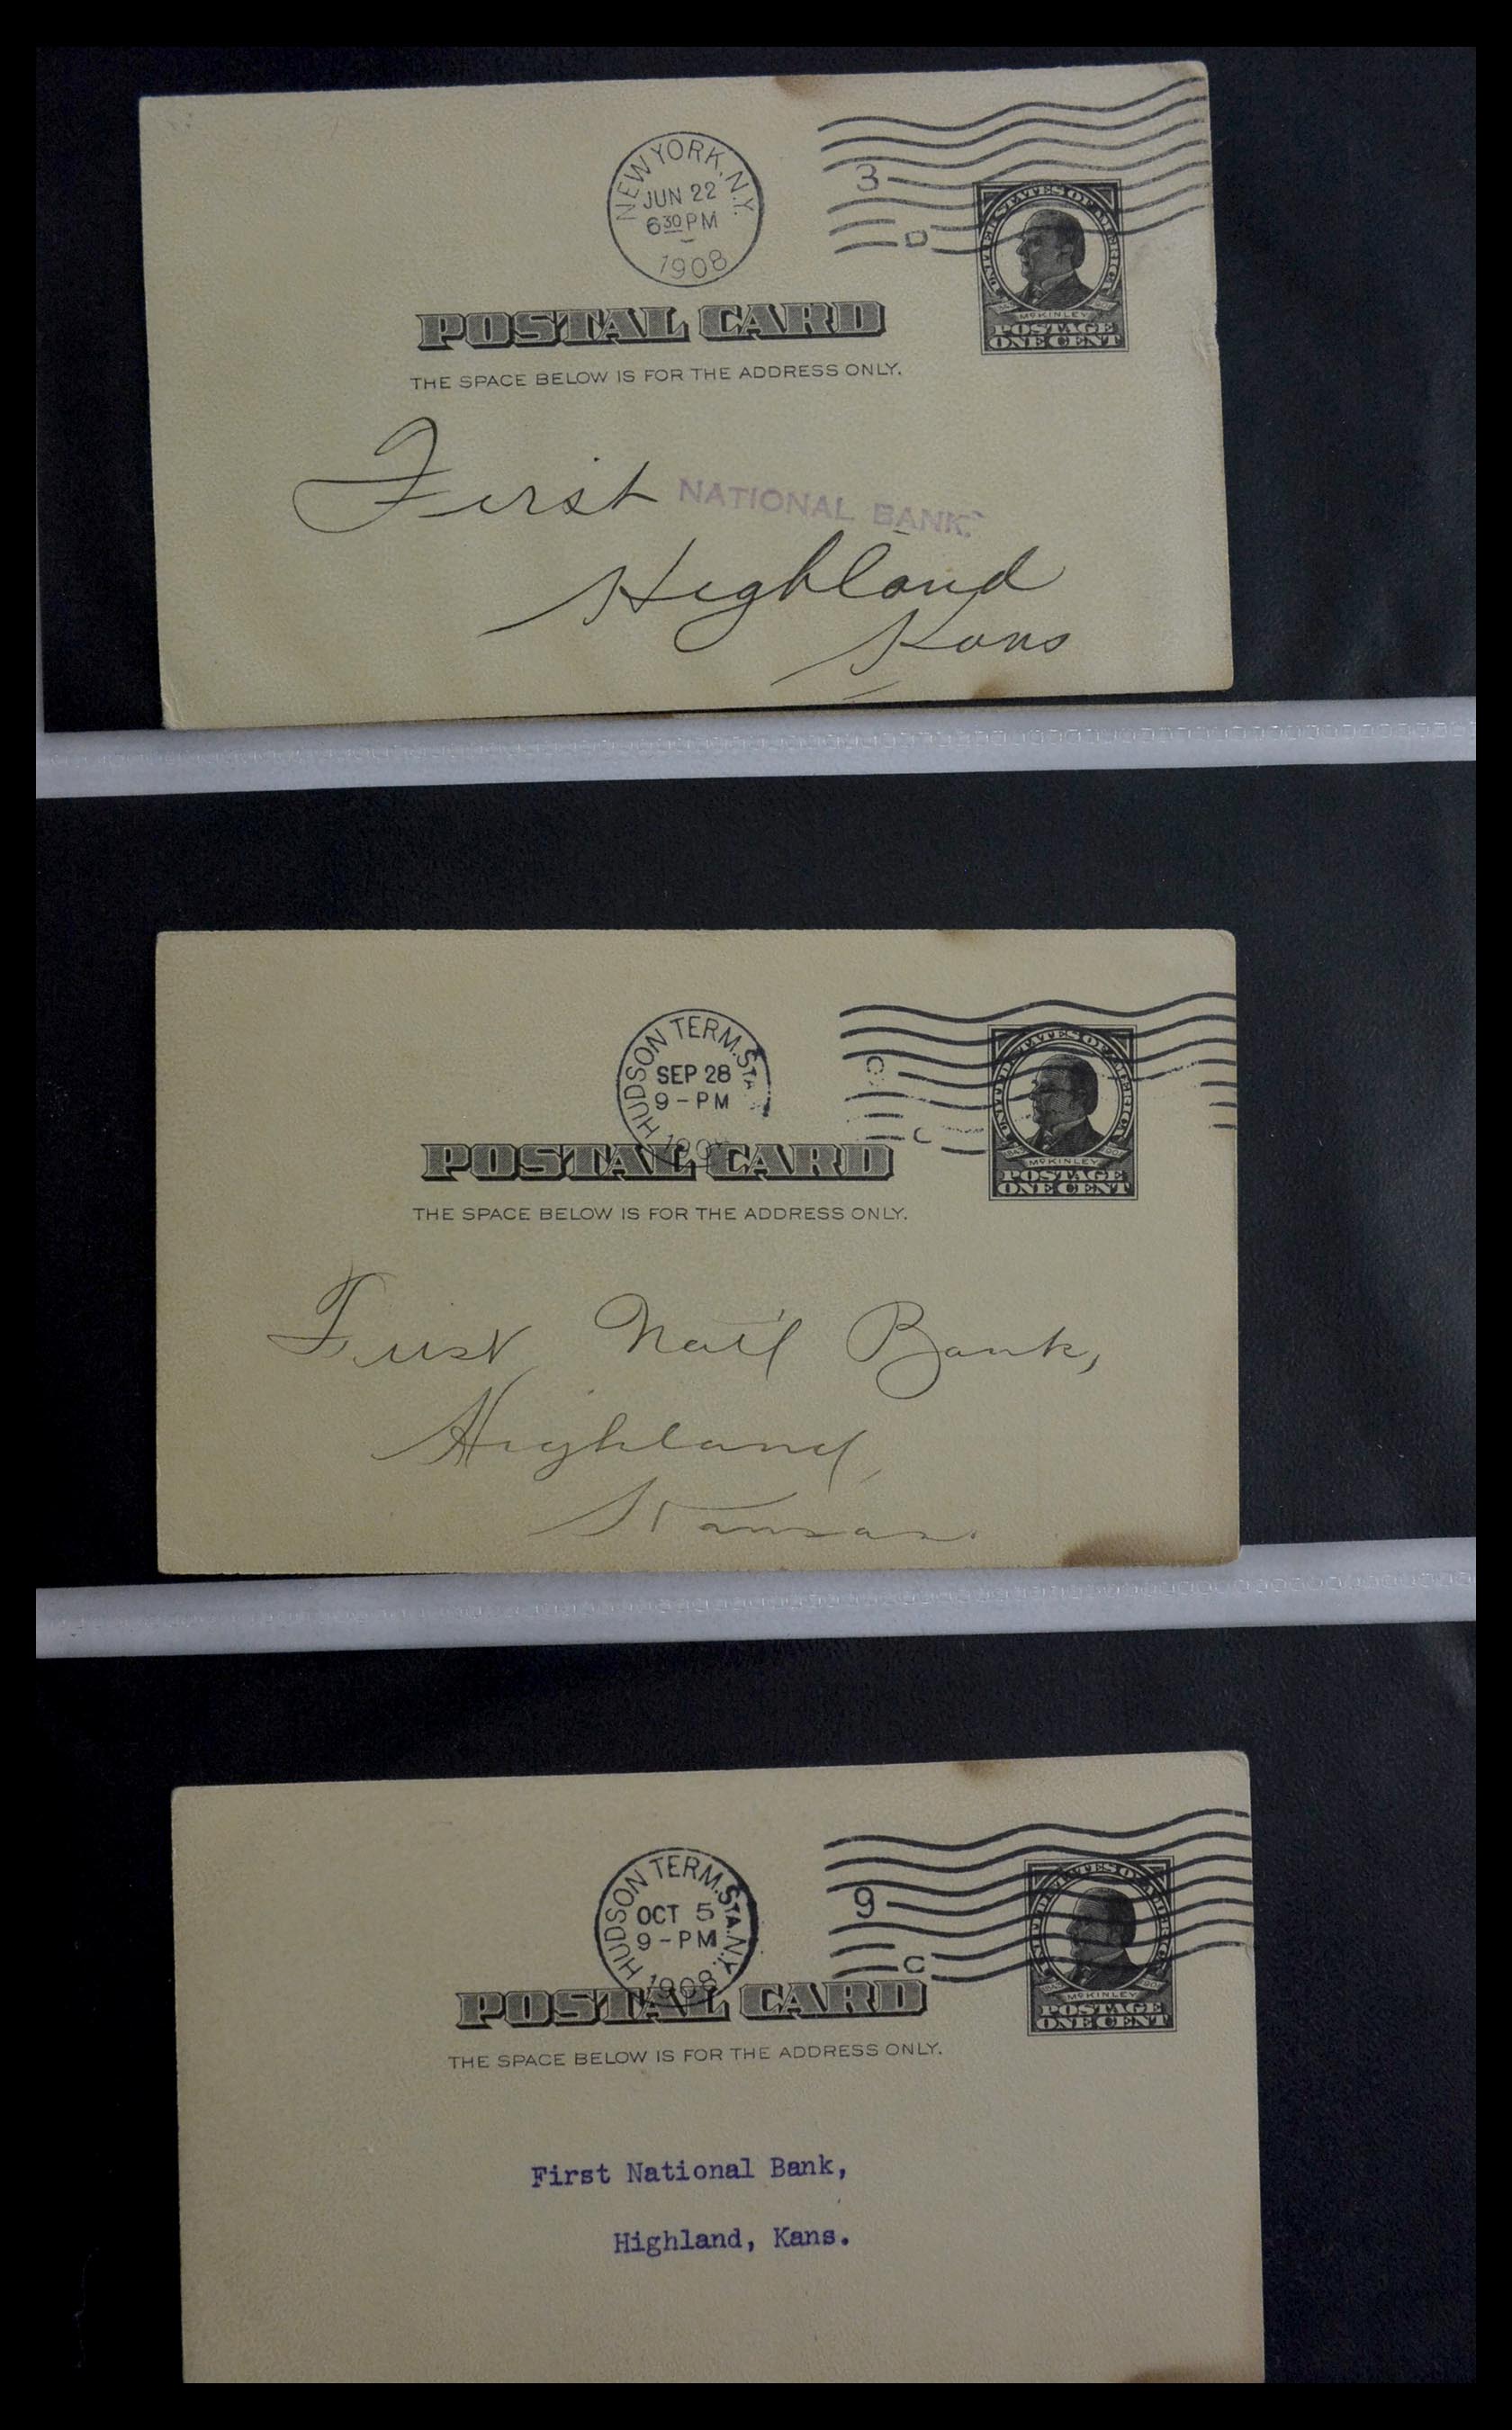 NEW YORK, N.Y.
JUN 22
6 30 PM
1908
3
D
UNITED STATES OF AMERICA
McKINLEY
POSTAGE
ONE CENT
POSTAL CARD
THE SPACE BELOW IS FOR THE ADDRESS ONLY.
First NATIONAL BANK.
Highland
Kans
HUDSON TERM. STA.
SEP 28
9 - PM
C
UNITED STATES OF AMERICA
1843 1901
McKINLEY
POSTAGE
ONE CENT
POSTAL CARD
THE SPACE BELOW IS FOR THE ADDRESS ONLY.
First Nat'l Bank,
Highland,
Kansas.
HUDSON TERM. STA. N.Y.
OCT 5
9 - PM
1908
9
C
UNITED STATES OF AMERICA
McKINLEY
POSTAGE
ONE CENT
POSTAL CARD
THE SPACE BELOW IS FOR THE ADDRESS ONLY.
First National Bank,
Highland, Kans.